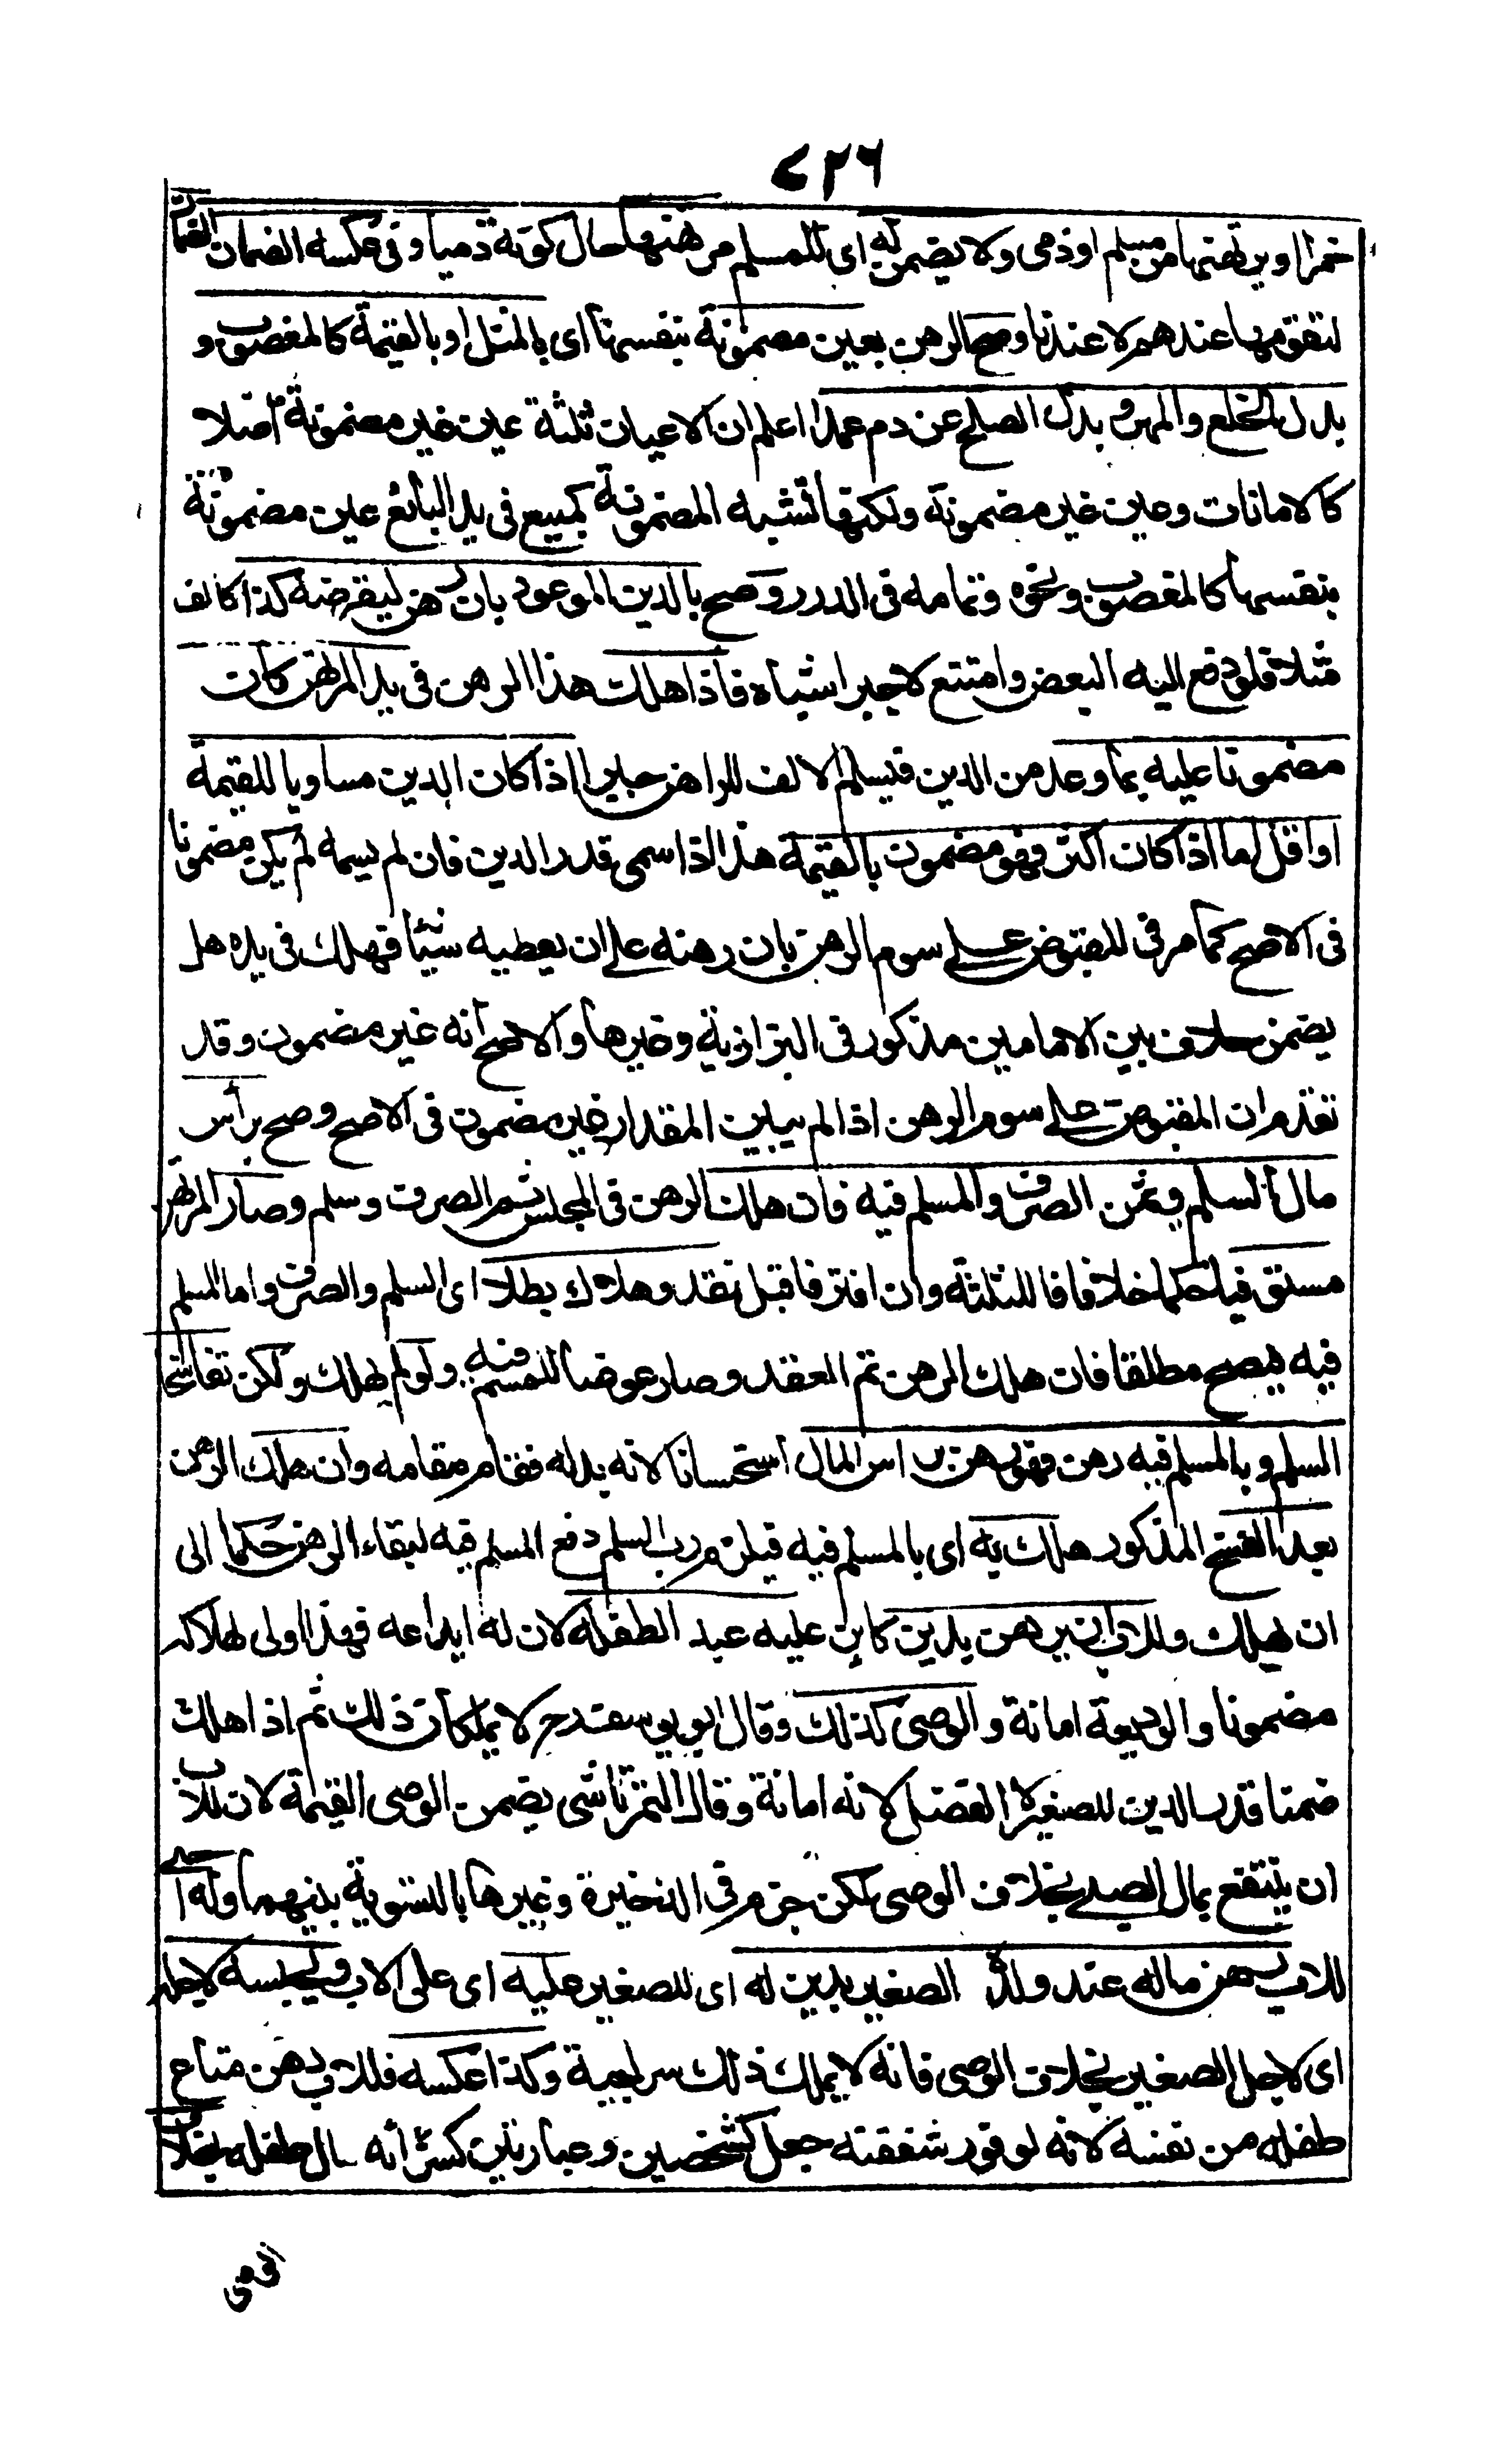 ٧٢٦
خمرا او يرتهنها من مسلم او ذمى ولا يضمن له اى للمسلم مرتهنها حال كونه ذميا وفى عكسه الضمان
لتقومها عندهم لا عندنا وصح الرهن بعين مضمونة بنفسها اى بالمثل او بالقيمة كالمغصوب و
بدل الخلع والمهر وبدل الصلح عن دم عمد اعلم ان الاعيان ثلثة عين غير مضمونة اصلا
كالامانات وعين غير مضمونة ولكنها تشبه المضمونة كمبيع فى يد البائع عين مضمونة
بنفسها كالمغصوب ونحوه وتمامه فى الدرر وصح بالدين الموعود بان رهن ليقرضه كذا كالف
مثلا فلو دفع اليه البعض وامتنع لا جبر اشباه فاذا هلك هذا الرهن فى يد المرتهن كان
مضمونا عليه بما وعد من الدين فيسلم الالف للراهن جبرا اذا كان الدين مساويا للقيمة
او اقل اما اذا كان اكثر فهو مضمون بالقيمة هذا اذا سمى قدر الدين فان لم يسمه لم يكن مضمونا
فى الاصح كما مر فى المقبوض على سوم الرهن بان رهنه على ان يعطيه شيئا فهلك فى يده هل
يضمن خلاف بين الامامين مذكور فى البزازية وغيرها والاصح انه غير مضمون وقد
تقدم ان المقبوض على سوم الرهن اذا لم يبين المقدار غير مضمون فى الاصح وصح براس
مال السلم وثمن الصرف والمسلم فيه فان هلك الرهن فى المجلس تم الصرف وسلم وصار المرتهن
مستوفيا حكما خلافا للثلثة وان افترقا قبل نقد وهلاك بطلا اى السلم والصرف واما المسلم
فيه فيصح مطلقا فان هلك الرهن تم العقد وصار عوضا للمسلم فيه ولو لم يهلك ولكن تفاسخا
السلم وبالمسلم فيه رهن فهو رهن براس المال استحسانا لانه بدله فقام مقامه وان هلك الرهن
بعد الفسخ المذكور هلك به اى بالمسلم فيه فيلزم رب السلم دفع المسلم فيه لبقاء الرهن حكما الى
ان يهلك وللاب ان يرهن بدين كاين عليه عبد الطفله لان له ايداعه فهذا اولى لهلاكه
مضمونا والوديعة امانة والوصى كذلك وقال ابو يوسف لا يملكان ذلك ثم اذا هلك
ضمنا قدر الدين للصغير لا الفضل لانه امانة وقال التمرتاشى يضمن الوصى القيمة لان للاب
ان ينتفع بمال الصبى بخلاف الوصى لكن جزم فى الذخيرة وغيرها بالتسوية بينهما وله اى
للاب رهن ماله عند ولده الصغير بدين له اى للصغير عليه اى على الاب ويحبسه لاجله
اى لاجل الصغير بخلاف الوصى فانه لا يملك ذلك سراجية وكذا عكسه فللاب رهن متاع
طفله من نفسه لانه لوفور شفقته جعل كشخصين وعبارتين كشرائه مال طفله بخلاف